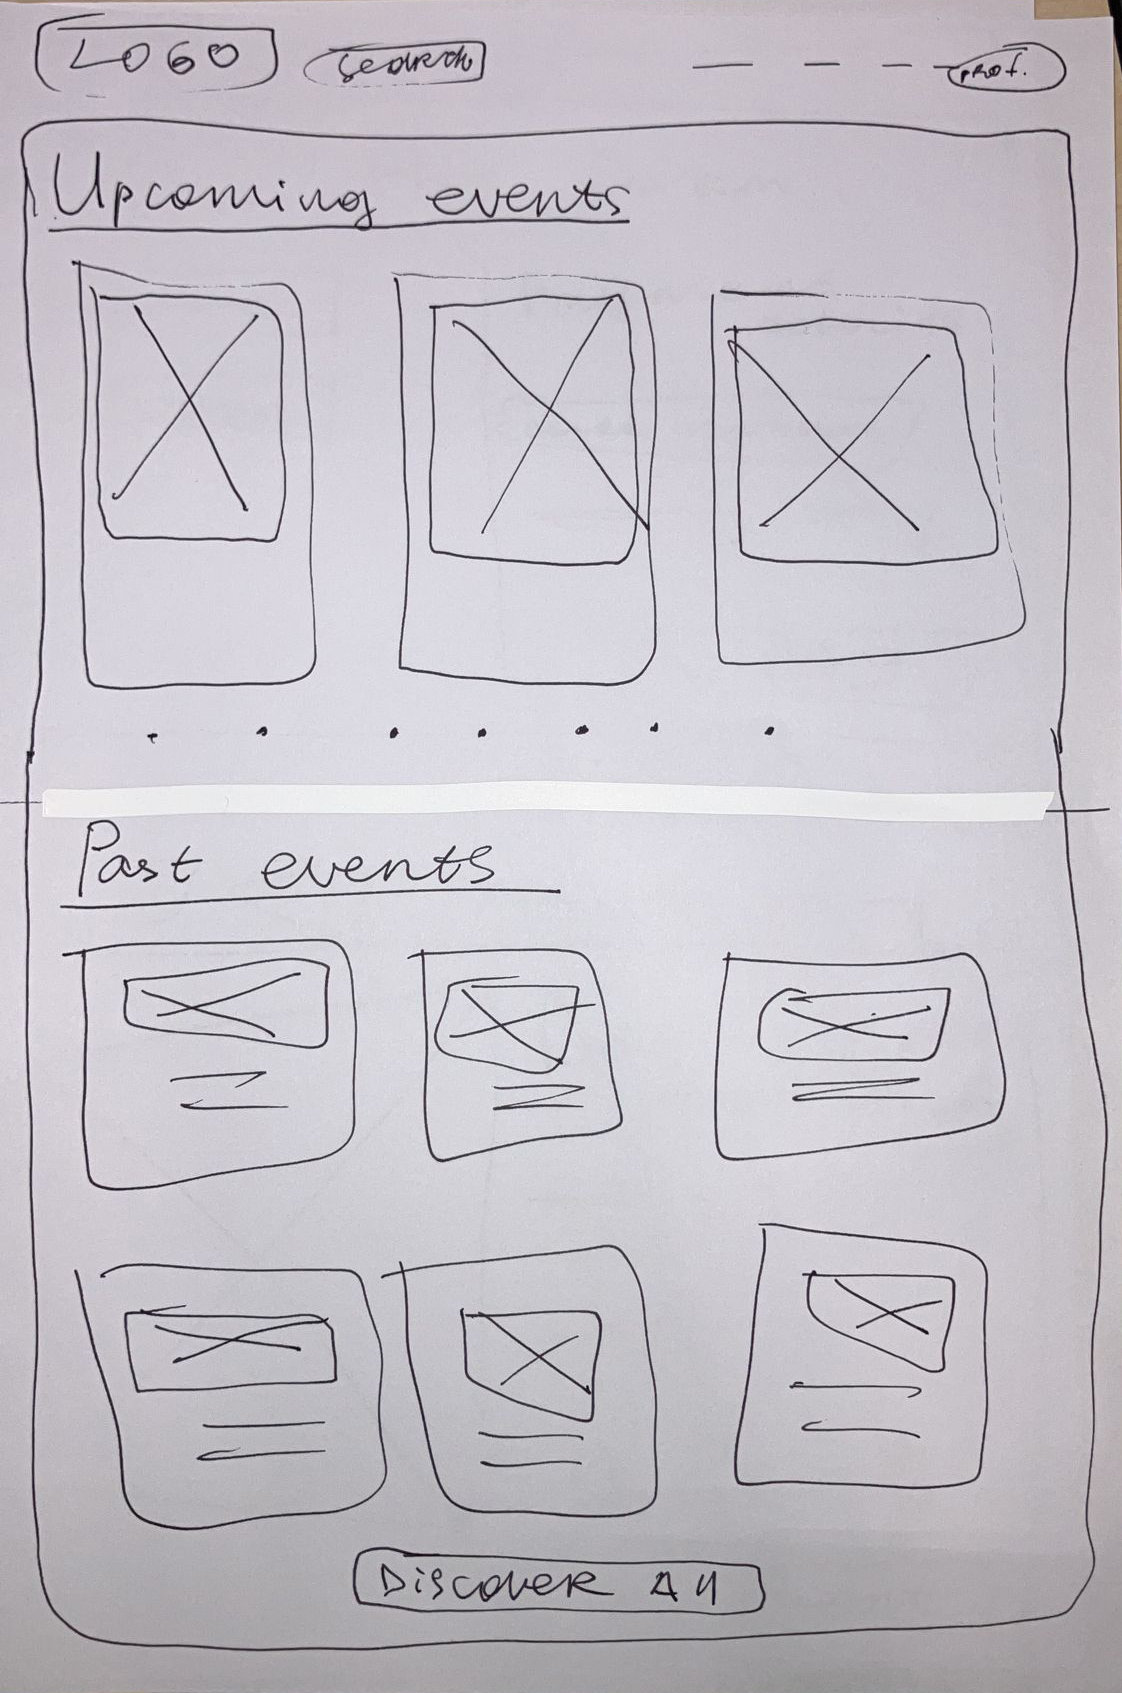 LOGO
search
prof.
Upcoming events
Past events
Discover All